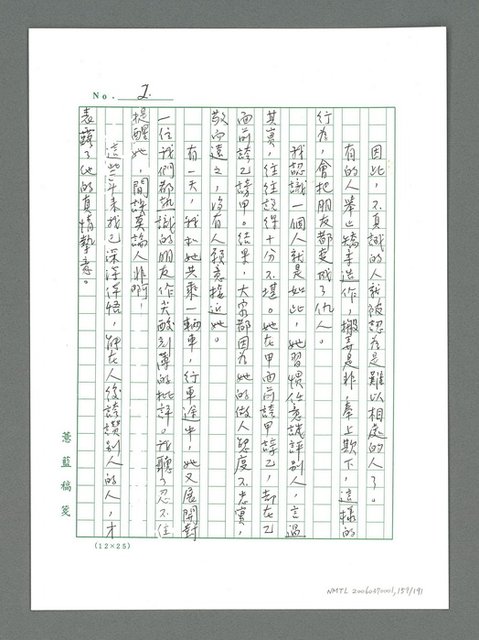 No. 2.
因此，不真誠的人就被認為是難以相處的人了。
有的人舉止矯柔造作，搬弄是非，奉上欺下，這樣的
行為，會把朋友都變成了仇人。
我認識一個人就是如此，她習慣任意譏評別人，言過
其實，往往說得十分不堪。她在甲面前誇甲諱乙，却在乙
面前誇乙諱甲。結果，大家都因為她的做人態度不忠實，
敬而遠之，沒有人願意接近她。
有一天，我和她共乘一輛車，行車途中，她又展開對
一位我們都熟識的朋友作尖酸刻薄的批評。我聽了忍不住
提醒她，閒談莫論人非啊！
這些年來我已深深領悟，能在人後誇讚別人的人，才
表露了他的真情摯意。
蒼藍稿箋
(12×25)
NMTL 20060370001, 157/191